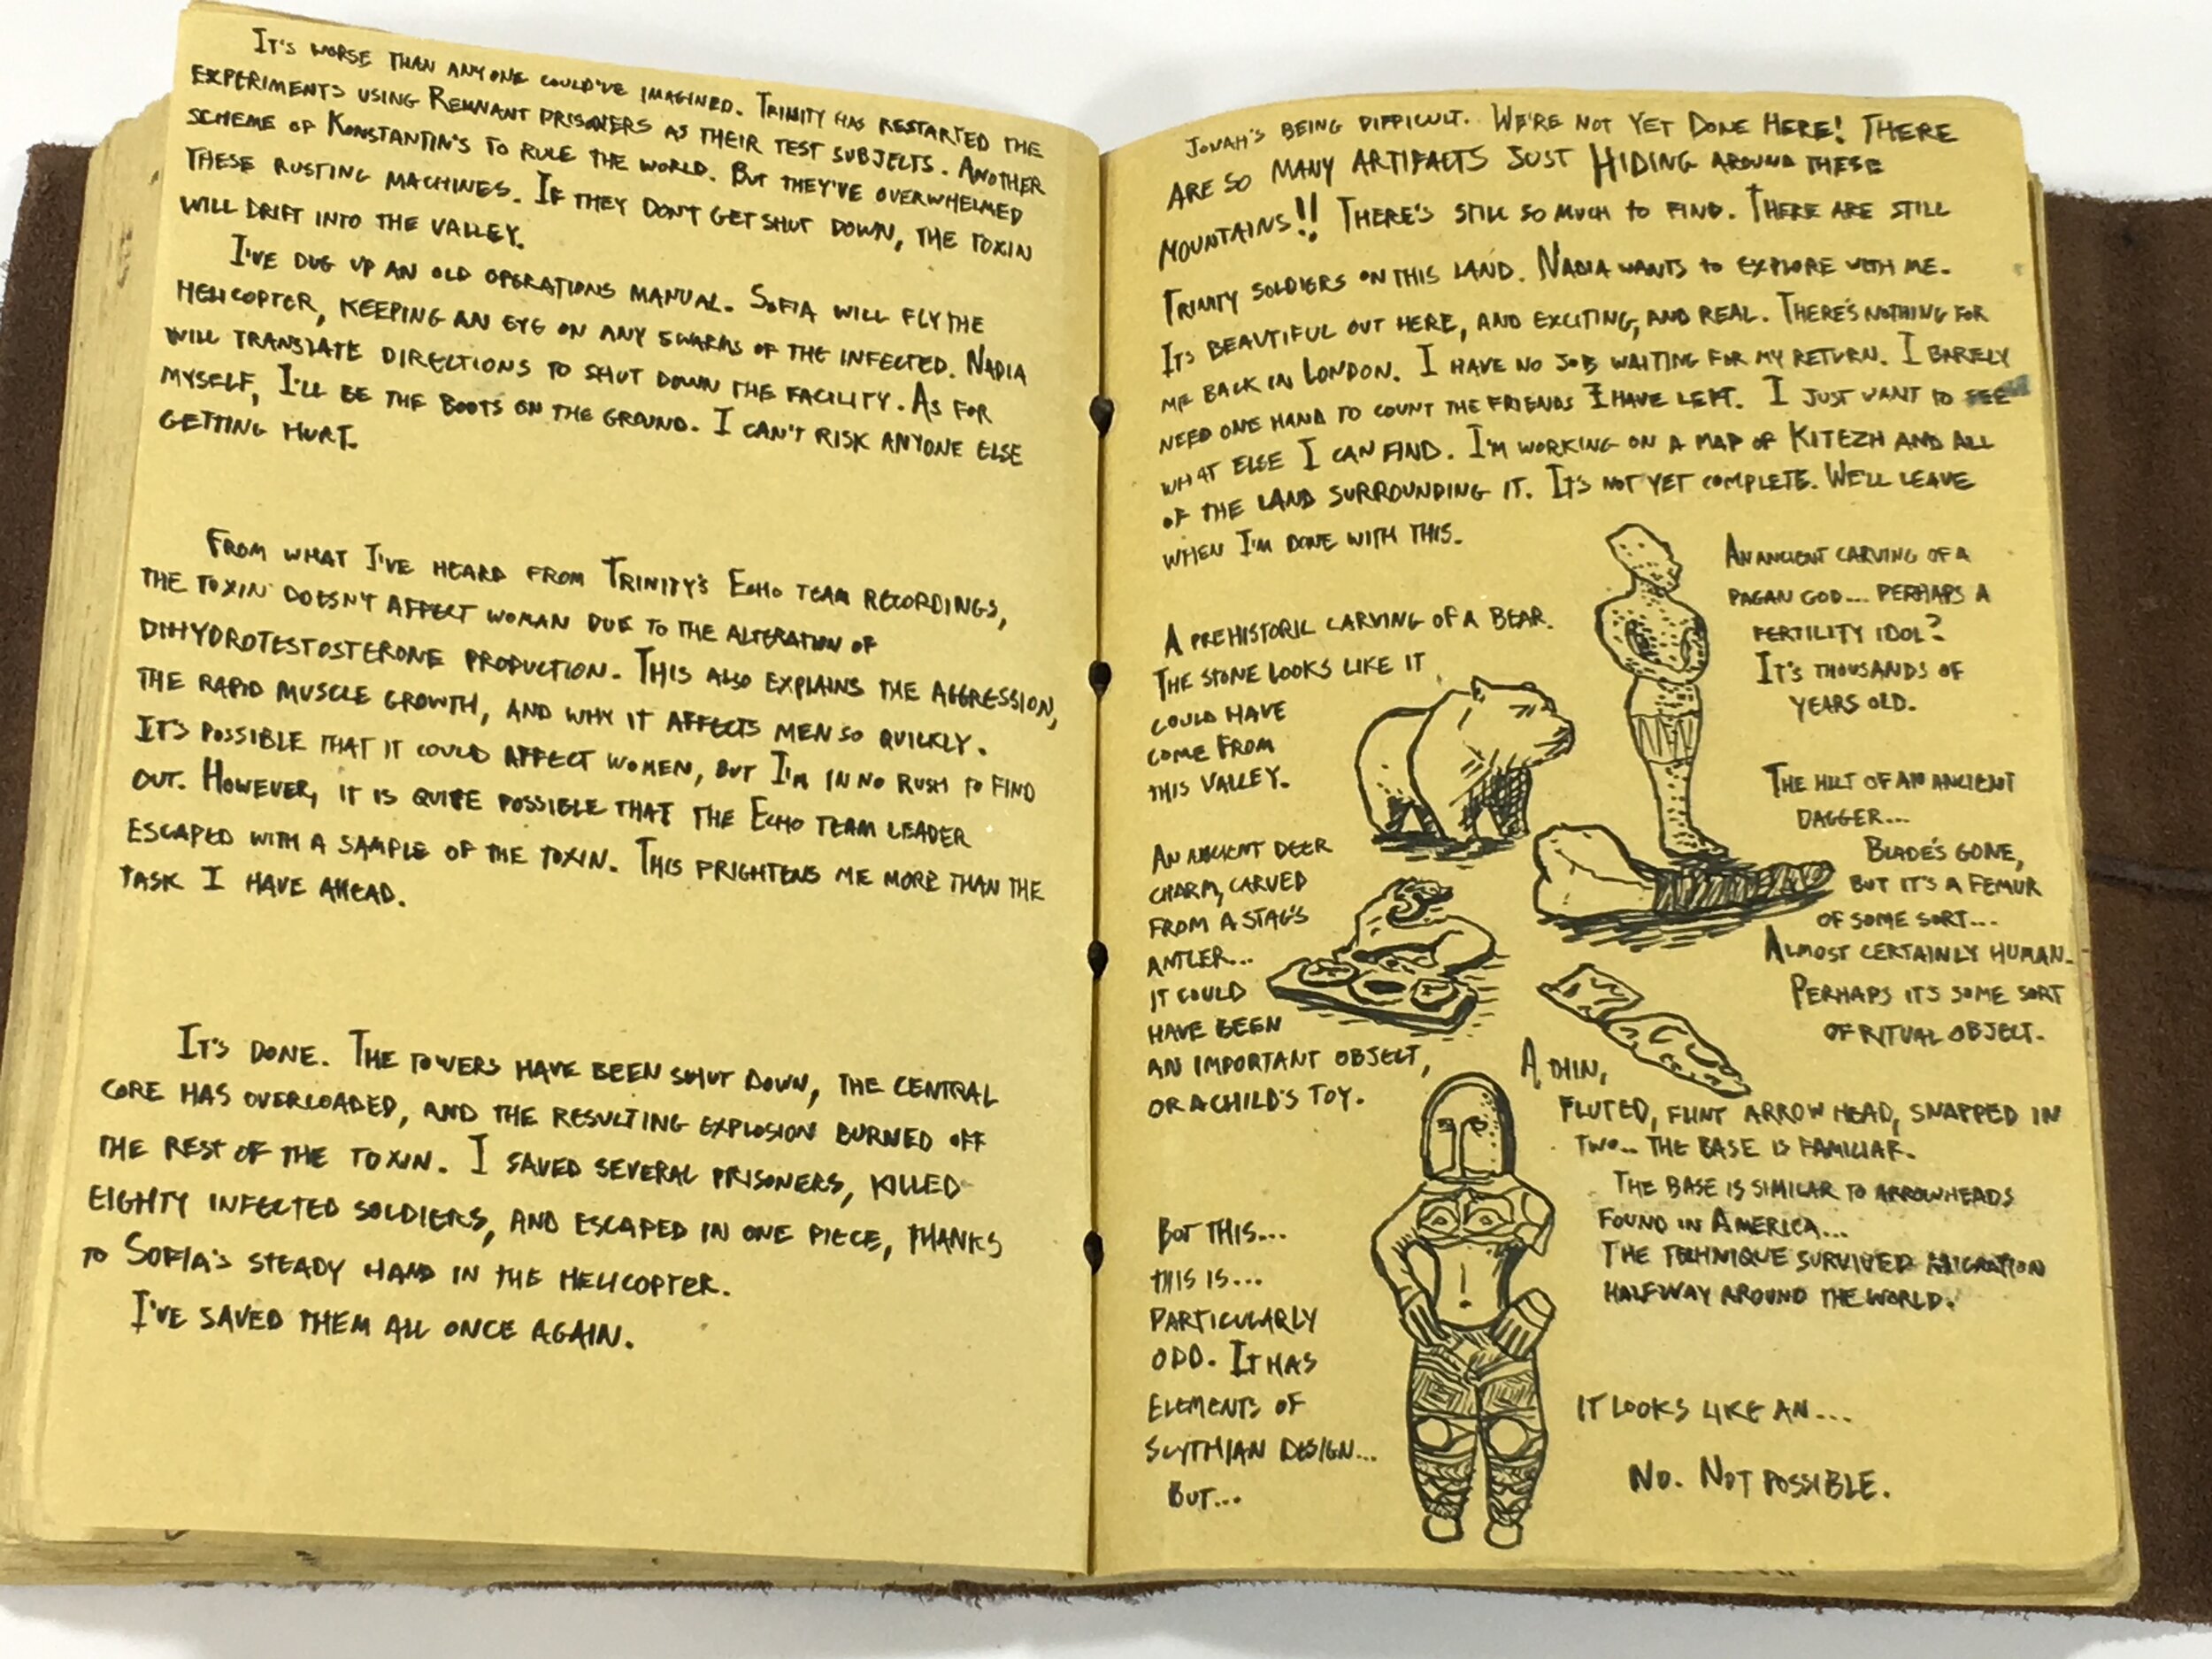 It's worse than anyone could've imagined. Trinity has restarted the
experiments using Remnant prisoners as their test subjects. Another
scheme of Konstantin's to rule the world. But they've overwhelmed
these rusting machines. If they don't get shut down, the toxin
will drift into the valley.
I've dug up an old operations manual. Sofia will fly the
helicopter, keeping an eye on any swarms of the infected. Nadia
will translate directions to shut down the facility. As for
myself, I'll be the boots on the ground. I can't risk anyone else
getting hurt.
From what I've heard from Trinity's Echo team recordings,
the toxin doesn't affect woman due to the alteration of
dihydrotestosterone production. This also explains the aggression,
the rapid muscle growth, and why it affects men so quickly.
It's possible that it could affect women, but I'm in no rush to find
out. However, it is quite possible that the Echo team leader
escaped with a sample of the toxin. This frightens me more than the
task I have ahead.
It's done. The towers have been shut down, the central
core has overloaded, and the resulting explosion burned off
the rest of the toxin. I saved several prisoners, killed
eighty infected soldiers, and escaped in one piece, thanks
to Sofia's steady hand in the helicopter.
I've saved them all once again.
Jonah's being difficult. We're not yet done here! There
are so many artifacts just hiding around these
mountains!! There's still so much to find. There are still
Trinity soldiers on this land. Nadia wants to explore with me.
Its beautiful out here, and exciting, and real. There's nothing for
me back in London. I have no job waiting for my return. I barely
need one hand to count the friends I have left. I just want to see
what else I can find. I'm working on a map of Kitezh and all
of the land surrounding it. It's not yet complete. We'll leave
when I'm done with this.
An ancient carving of a
pagan god... perhaps a
fertility idol?
It's thousands of
years old.
A prehistoric carving of a bear.
The stone looks like it
could have
come from
this valley.
The hilt of an ancient
dagger...
Blade's gone,
but it's a femur
of some sort...
Almost certainly human.
Perhaps it's some sort
of ritual object.
An ancient deer
charm, carved
from a stag's
antler...
it could
have been
an important object,
or a child's toy.
A thin,
fluted, flint arrow head, snapped in
two... the base is familiar.
The base is similar to arrowheads
found in America...
The technique survived migration
halfway around the world.
But this...
this is...
particularly
odd. It has
elements of
Scythian design...
But...
it looks like an...
No. Not possible.